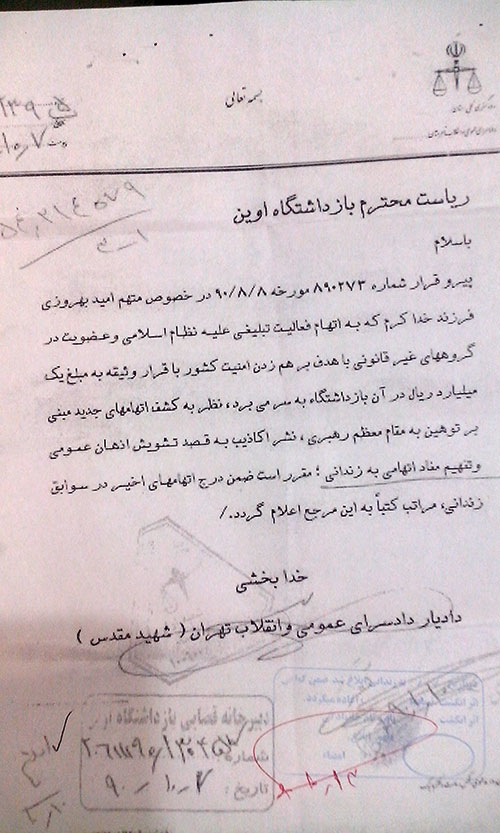 بسمه تعالی
ریاست محترم بازداشتگاه اوین
باسلام
پیرو قرار شماره ۸۹۰۲۷۳ مورخه ۹۰/۸/۸ در خصوص متهم امید بهروزی
فرزند خدا کرم که به اتهام فعالیت تبلیغی علیه نظام اسلامی وعضویت در
گروههای غیر قانونی با هدف بر هم زدن امنیت کشور با قرار وثیقه به مبلغ یک
میلیارد ریال در آن بازداشتگاه به سر می برد، نظر به کشف اتهامهای جدید مبنی
بر توهین به مقام معظم رهبری، نشر اکاذیب به قصد تشویش اذهان عمومی
وتفهیم مفاد اتهامی به زندانی ؛ مقرر است ضمن درج اتهامهای اخیر در سوابق
زندانی، مراتب کتباً به این مرجع اعلام گردد./
خدا بخشی
دادیار دادسرای عمومی وانقلاب تهران ( شهید مقدس )
دبیرخانه قضایی بازداشتگاه اوین
شماره
تاریخ :